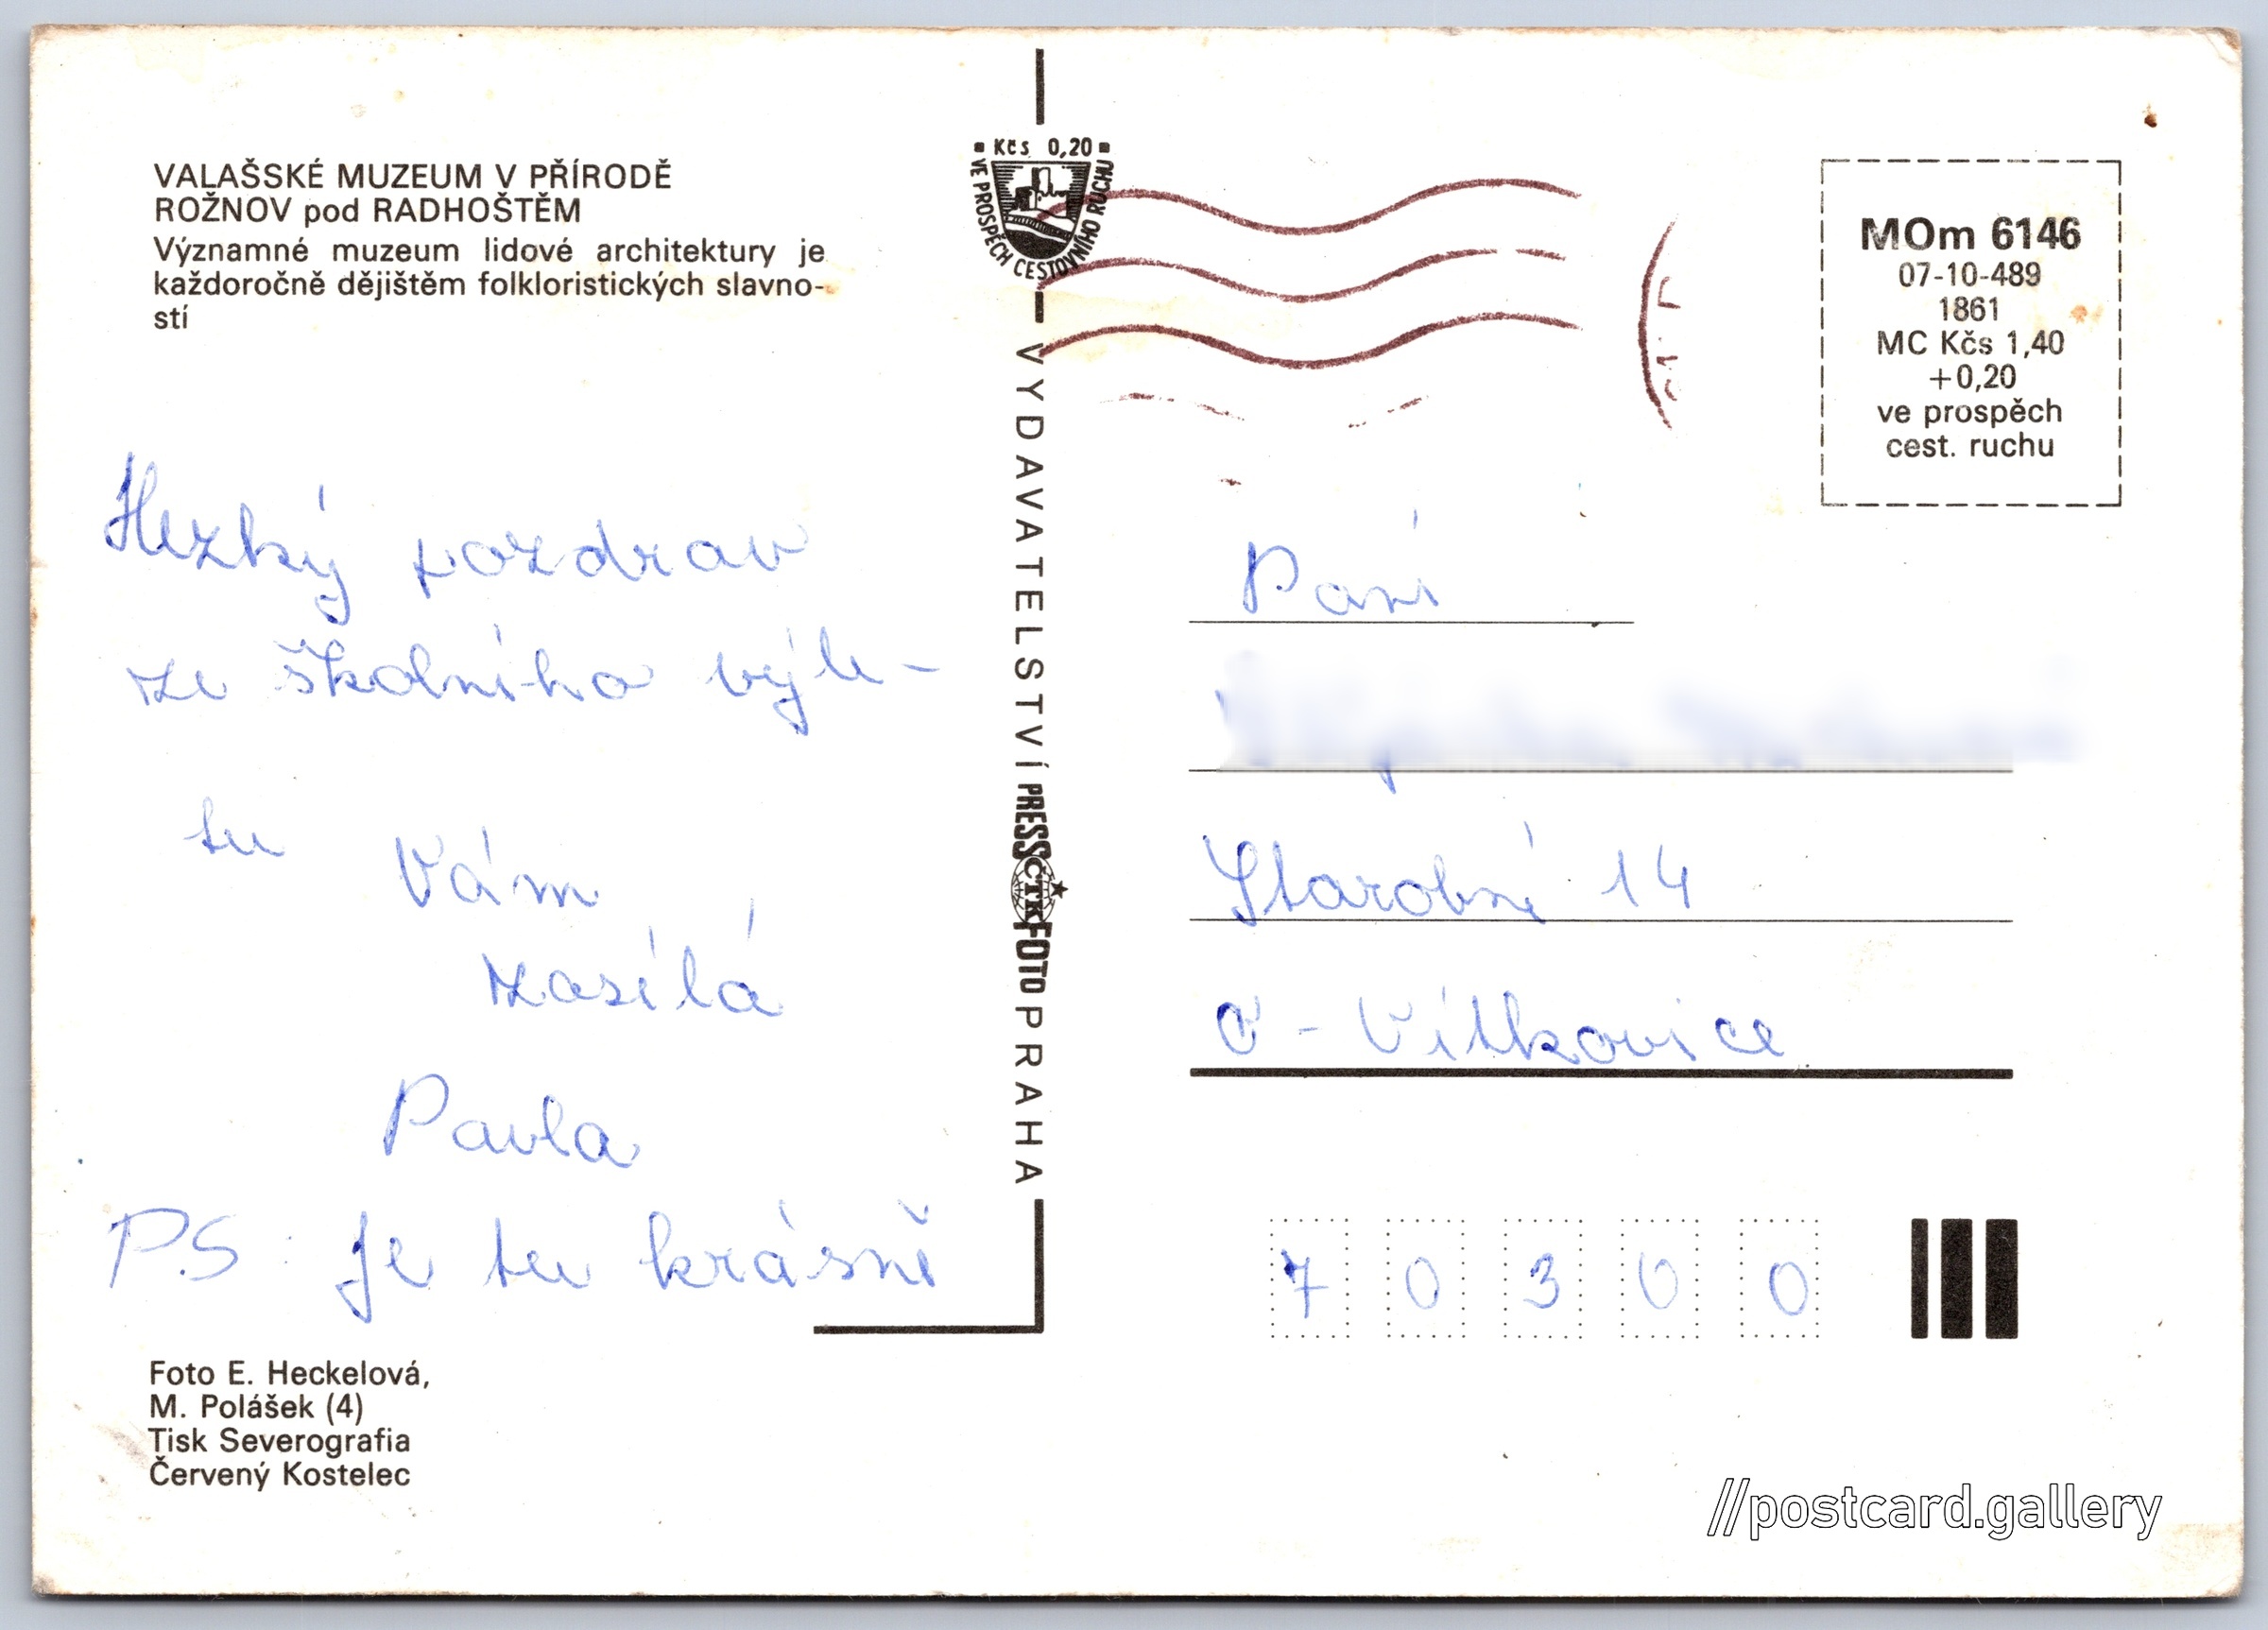 VALAŠSKÉ MUZEUM V PŘÍRODĚ
ROŽNOV pod RADHOŠTĚM
Významné muzeum lidové architektury je
každoročně dějištěm folkloristických slavno-
stí
Hezký pozdrav
ze školního výle-
tu Vám
zasílá
Pavla
PS: Je tu krásně
Foto E. Heckelová,
M. Polášek (4)
Tisk Severografia
Červený Kostelec
Kčs 0,20
VE PROSPĚCH CESTOVNÍHO RUCHU
VYDAVATELSTVÍ PRESSFOTO PRAHA
ČTK
MOm 6146
07-10-489
1861
MC Kčs 1,40
+0,20
ve prospěch
cest. ruchu
Paní
Starobní 14
O - Vítkovice
70300
//postcard.gallery